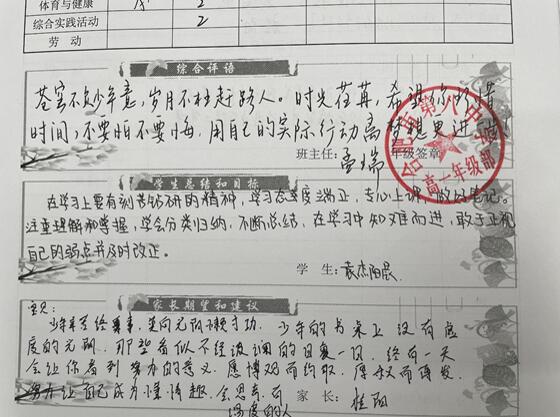 体育与健康 2
综合实践活动 2
劳动
综合评语
苍穹不负少年意，岁月不枉赶路人。时光荏苒，希望你珍惜
时间，不要怕不要悔，用自己的实际行动离梦想更进一步！
班主任：孟瑞 年级签章
高一年级部
学生总结和目标
在学习上要有刻苦钻研的精神，学习态度端正，专心上课，做好笔记。
注重理解和掌握，学会分类归纳，不断总结，在学习中知难而进，敢于正视
自己的弱点并及时改正。
学生：袁杰阳晨
家长期望和建议
少年的书桌上没有虚
度的光阴，那些看似不经波澜的日复一日，终有一天
会让你看到努力的意义，愿博观而约取，厚积而薄发，
努力让自己成为懂情趣、会思索、有
温度的人
家长：